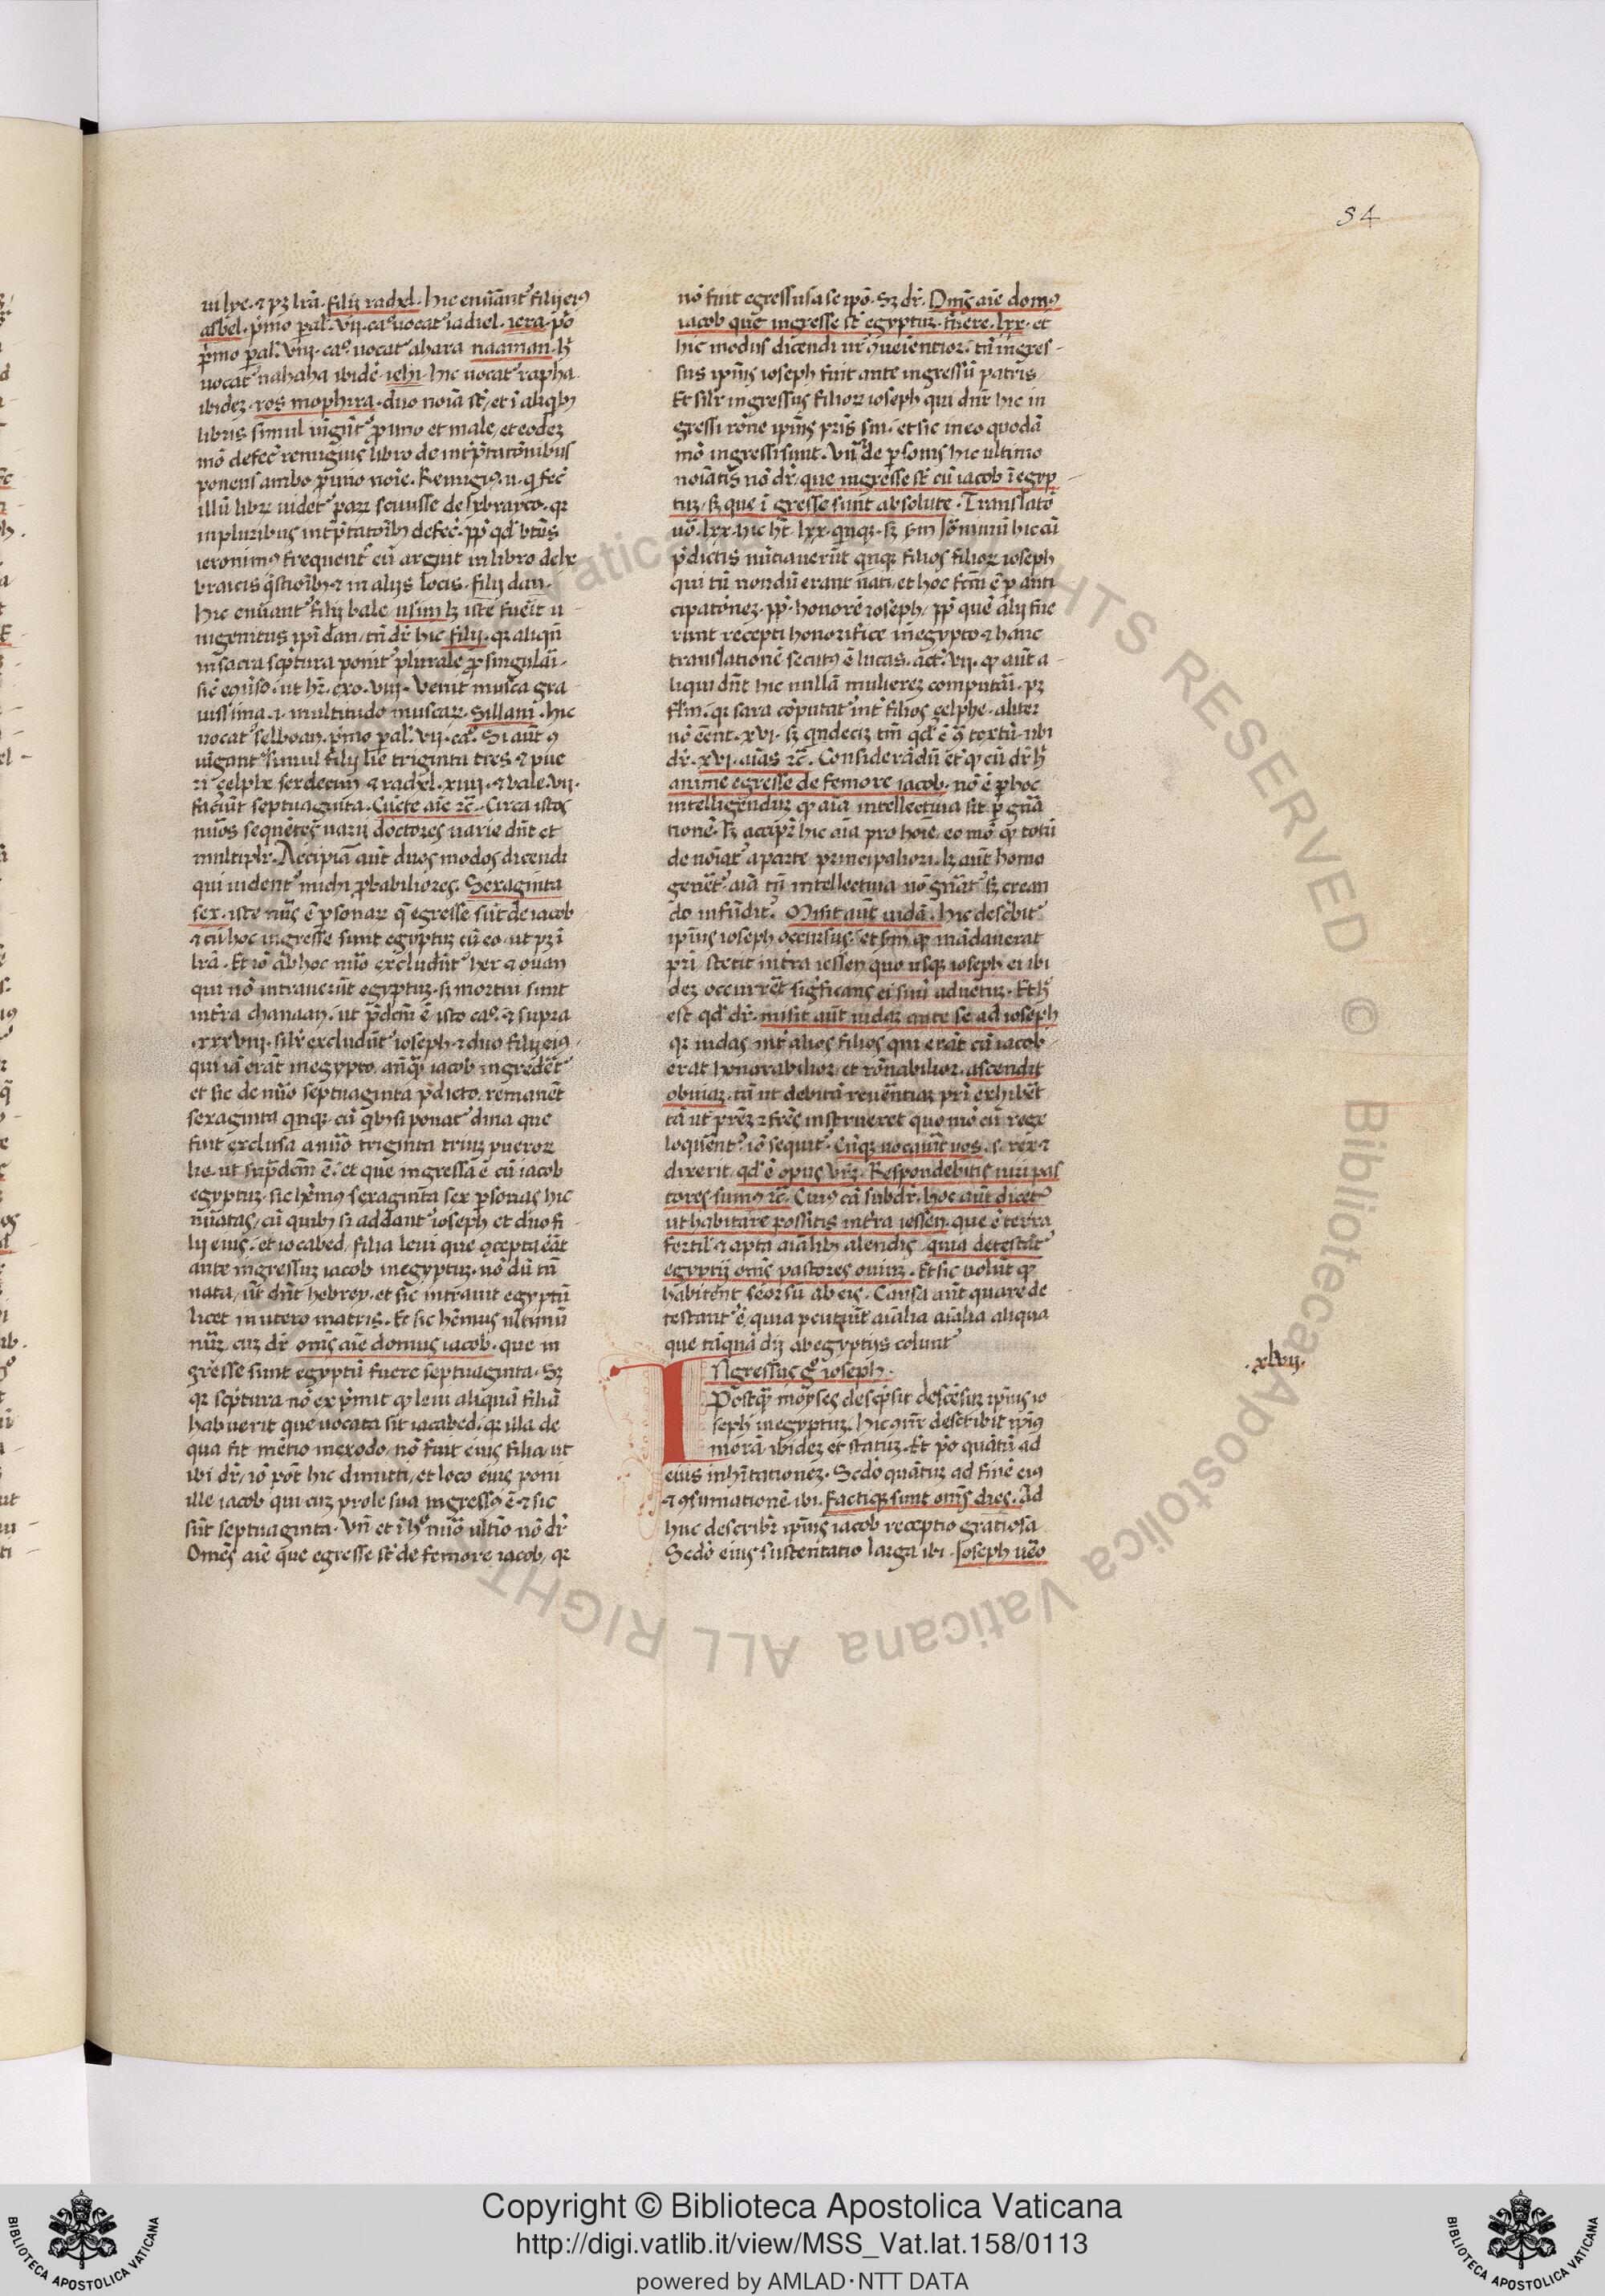 84
ui lye. ⁊ pꝫ lr̄a. filij rachel. hic enuāntᷣ filij eiꝰ
asbel. p̄mo pal. vij. caº uocatᷣ iadiel. iera. pº
p̄mo pal. viij. caº. uocatᷣ ahara naaman. hͥ
uocatᷣ nahaha ibidē. iehi. hic uocatᷣ rapha
ibidez. ros mophira. duo noīa st̄. et ī aliqbꝫ
libris simul iūgūtᷣ p̄imo et male, et eodez
mō defec̄ remigius libro de int̄p̄tatōnibus
ponens ambo p̄imo noīe. Remigiꝰ. n. q fec̄
illū libꝝ uidetᷣ paꝝ sciuisse de hebrayco. qꝛ
in pluribus int̄p̄tatōībꝫ defec̄. ꝓp̄ qd̄ btūs
ieronimꝰ frequentᷣ eū arguit in libro de he
braicis q̄stioībꝫ. ⁊ in alijs locis. filij dan.
hic enūantᷣ filij bale usim lꝫ iste fuēit u
nigenitus ipī dan, tn̄ dr̄ hic filij. qꝛ aliqn̄
in sacra sc̄ptura ponitᷣ plurale p̄ singulāi.
sic̄ eꝯūso. ut hr̄. exo. viij. Venit musca gra
uissima. i. multitudo muscaꝝ. Sillani. hic
uocatᷣ selboan. p̄mo pal. vij. caº. Si aūt ꝯ
iūgantᷣ simul filij lie triginta tres. ⁊ pue
ri çelphe sexdecim ⁊ rachel. xiiij. ⁊ bale. vij.
faciūt septuaginta. Cūcte aīe ⁊c̄. Circa istos
nūos sequētes uarij doctores uarie dn̄t et
multiplr̄. Accipiā aūt duos modos dicendi
qui uidentᷣ michi p̄babiliores. Sexaginta
sex. iste nūs ē p̄sonaꝝ q̄ egresse sūt de iacob
⁊ cū hoc ingresse sunt egyptuꝫ cū eo, ut pꝫ ī
lr̄a. Et iō ab hoc nūo excludūtᷣ her ⁊ onan
qui nō intrauerūt egyptuꝫ. sꝫ mortui sunt
int̄ra chanaan. ut p̄dcm̄ ē isto caº. ⁊ supra
.xxxviij. silr̄ excludūtᷣ ioseph ⁊ duo filij eiꝰ.
qui iā erāt in egypto, anq̄ iacob ingredēt̄
et sic de nūo septuaginta p̄dicto, remanēt
sexaginta qnqꝫ. cū qbꝫ si ponatᷣ dina que
fuit exclusa a nūo triginta triuꝫ pueroꝝ
lie. ut sup̄dcm̄ ē. et que ingressa ē cū iacob
egyptuꝫ. sic hēmꝰ sexaginta sex p̄sonas hic
nūatas, cū quibꝫ si addantᷣ ioseph et duo fi
lij eius. et iocabed, filia leui que ꝯcepta erāt
ante ingressuꝫ iacob in egyptuꝫ. nō dū tn̄
nata, ut dn̄t hebrey. et sic intrauit egyptū
licet in utero matris. Et sic hēmus ultimū
nūꝝ. cuꝫ dr̄ omīs aīe domus iacob. que in
gresse sunt egyptū fuere septuaginta. Sꝫ
qꝛ sc̄ptura nō exp̄mit qꝫ leui aliquā filiā
habuerit que uocata sit iacabed. qꝛ illa de
qua fit metio in exodo, nō fuit eius filia ut
ibi dr̄, iō pōt hic dimitti, et loco eius poni
ille iacob qui cuꝫ prole sua ingressꝰ ē. ⁊ sic
sūt septuaginta. Vn̄ et ī hº nūo ultīo nō dr̄
Omēs aīe que egresse st̄ de femore iacob, qꝛ
nō fuit egressus a se ipō. Sꝫ dr̄. Omīs aīe domꝰ
iacob que ingresse st̄ egyptuꝫ. fuere. lxx. et
hic modus dicendi ur̄ ꝯueniētior. tn̄ ingres
sus ipīus ioseph fuit ante ingressū patris,
Et silr̄ ingressus filioꝝ ioseph qui dn̄r hic in
gressi rōne ipīus pr̄is sui. et sic in eo quodā
mō ingressi sunt. Vn̄ de p̄sonis hic ultimo
noīatis nō dr̄. que ingresse st̄ cū iacob ī egyp
tuꝫ, sꝫ que īgresse sunt absolute. Translatō
uō. lxx. hic ht̄. lxx. qnqꝫ. sꝫ ẜm Ieronimū hic cū
p̄dictis nūauerūt qnqꝫ filios filioꝝ ioseph
qui tū nondū erant nati, et hoc fcm̄ ē p̄ anti
cipatōnez. ꝓp̄. honorē ioseph, ꝓp̄ quē alij fue
runt recepti honorifice in egypto ⁊ hanc
translationē secutꝰ ē lucas. act. vij. qꝫ aūt a
liqui dn̄t hic nullā mulierez computari. pꝫ
flm̄. qꝛ sara cōputatᷣ int̄ filios çelphe. aliter
nō eēnt. xvi. sꝫ qndeciꝫ tm̄ qd̄ ē ꝯ textū. ubi
dr̄. xvi. aīas ⁊c̄. Considerādū et̄ qꝫ cū dr̄ hͥ
anime egresse de femore iacob. nō ē p̄ hoc
intelligenduꝫ qꝫ aīa intellectiua sit p̄ gn̄a
tionē. sꝫ accipr̄ hic aīa pro hoīe, eo mō qº totū
denoīatᷣ a parte principaliori. lꝫ aūt homo
gen̄etᷣ. aīa tn̄ intellectiua nō gn̄atᷣ sꝫ crean
do infūditᷣ. Misit aūt iudā. hic desc̄bitᷣ
ipīus ioseph occursus. et ẜm qꝫ mādauerat
pr̄i stetit int̄ra iessen quo usqꝫ ioseph ei ibi
dez occurrēt sigficans ei suū aduētuꝫ. Et hͥ
est qd̄ dr̄. misit aūt iudaꝫ ante se ad ioseph
qꝛ iudas int̄ alios filios qui erāt cū iacob
erat honorabilior, et rōnabilior. ascendit
obuiaꝫ. tū ut debitā reuētiaꝫ pr̄i exhibēt
tū ut prēꝫ ⁊ frēs instrueret quo mō cū rege
loquentᷣ. iō sequitᷣ. Cūqꝫ uocauit uos. s. rex ⁊
dixerit, qd̄ ē opus vr̄ꝫ. Respondebitis uiri pas
tores sumꝰ ⁊c̄. Cuiꝰ cā subdr̄. hoc aūt dicetᷣ
ut habitare possitis int̄ra iessen. que ē terra
fertilᷤ ⁊ apta aīalibꝫ alendis. quia detestātᷣ
egyptij omīs pastores ouiuꝫ. Et sic uolūt qꝫ
habitent seorsū ab eis. Causa aūt quare de
testantᷣ ē, quia pecuniū aīalia aīalia aliqua
que tāquā dij ab egyptijs coluntᷣ
INgressus gº ioseph.
Postqꝫ moyses desc̄psit descēsuꝫ ipīus io
seph in egyptuꝫ. hic ꝯnr̄ describit ipīꝰ
morā ibidez et statuꝫ. Et pº quātū ad
eius inhitationez. Sedº quātuꝫ ad finē eiꝰ
⁊ ꝯsumationē ibi. factiqꝫ sunt omīs dies. Ad
huc describr̄ ipīus iacob receptio gratiosa
Sedº eius sustentatio larga ibi. Joseph uēo
.xlvij.
Copyright © Biblioteca Apostolica Vaticana
http://digi.vatlib.it/view/MSS_Vat.lat.158/0113
powered by AMLAD·NTT DATA